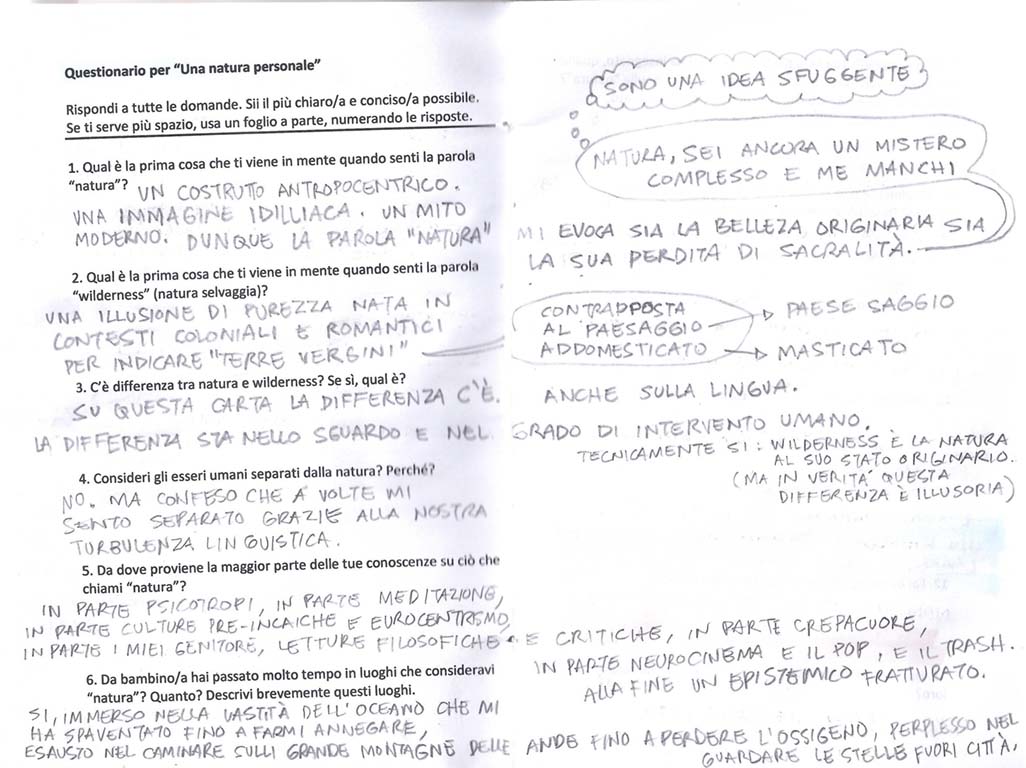 Questionario per “Una natura personale”
Rispondi a tutte le domande. Sii il più chiaro/a e conciso/a possibile.
Se ti serve più spazio, usa un foglio a parte, numerando le risposte.
1. Qual è la prima cosa che ti viene in mente quando senti la parola
“natura”? UN COSTRUTTO ANTROPOCENTRICO.
UNA IMMAGINE IDILLIACA. UN MITO
MODERNO. DUNQUE LA PAROLA "NATURA"
SONO UNA IDEA SFUGGENTE
NATURA, SEI ANCORA UN MISTERO
COMPLESSO E ME MANCHI
MI EVOCA SIA LA BELLEZA ORIGINARIA SIA
LA SUA PERDITA DI SACRALITÀ.
2. Qual è la prima cosa che ti viene in mente quando senti la parola
“wilderness” (natura selvaggia)?
UNA ILLUSIONE DI PUREZZA NATA IN
CONTESTI COLONIALI E ROMANTICI
PER INDICARE "TERRE VERGINI"
CONTRAPPOSTA
AL PAESAGGIO
ADDOMESTICATO
PAESE SAGGIO
MASTICATO
3. C’è differenza tra natura e wilderness? Se sì, qual è?
SU QUESTA CARTA LA DIFFERENZA C'È. ANCHE SULLA LINGUA.
LA DIFFERENZA STA NELLO SGUARDO E NEL GRADO DI INTERVENTO UMANO.
TECNICAMENTE SI: WILDERNESS È LA NATURA
AL SUO STATO ORIGINARIO.
(MA IN VERITÀ QUESTA
DIFFERENZA È ILLUSORIA)
4. Consideri gli esseri umani separati dalla natura? Perché?
NO. MA CONFESO CHE A VOLTE MI
SENTO SEPARATO GRAZIE ALLA NOSTRA
TURBULENZA LINGUISTICA.
5. Da dove proviene la maggior parte delle tue conoscenze su ciò che
chiami “natura”?
IN PARTE PSICOTROPI, IN PARTE MEDITAZIONE,
IN PARTE CULTURE PRE-INCAICHE E EUROCENTRISMO,
IN PARTE I MIEI GENITORE, LETTURE FILOSOFICHE E CRITICHE, IN PARTE CREPACUORE,
IN PARTE NEUROCINEMA E IL POP, E IL TRASH.
ALLA FINE UN EPISTEMICO FRATTURATO.
6. Da bambino/a hai passato molto tempo in luoghi che consideravi
“natura”? Quanto? Descrivi brevemente questi luoghi.
SI, IMMERSO NELLA VASTITÀ DELL'OCEANO CHE MI
HA SPAVENTATO FINO A FARMI ANNEGARE,
ESAUSTO NEL CAMINARE SULLI GRANDE MONTAGNE DELLE ANDE FINO A PERDERE L'OSSIGENO, PERPLESSO NEL
GUARDARE LE STELLE FUORI CITTÀ,